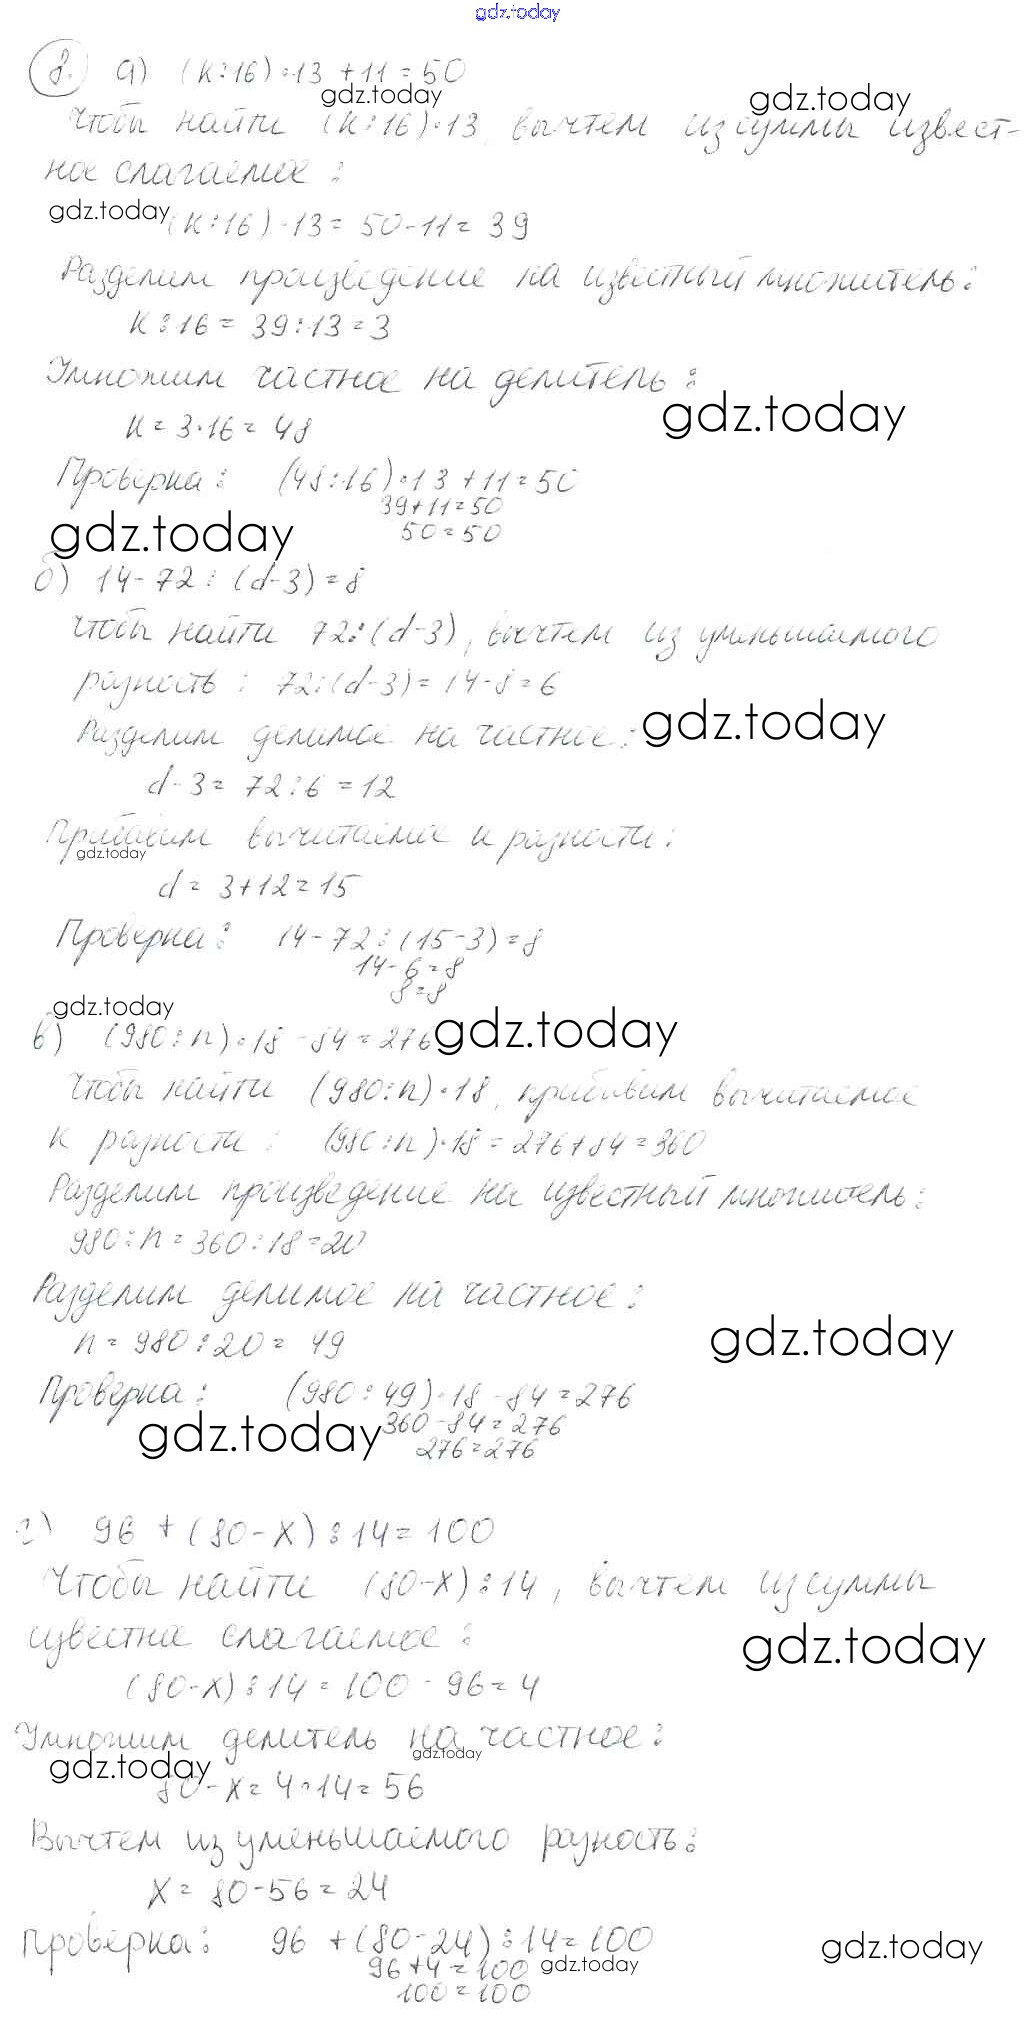 gdz.today
8. а) (k:16)·13+11=50
gdz.today gdz.today
Чтобы найти (k:16)·13, вычтем из суммы извест-
ное слагаемое:
gdz.today (k:16)·13=50-11=39
Разделим произведение на известный множитель:
k:16=39:13=3
Умножим частное на делитель:
gdz.today
k=3·16=48
Проверка: (48:16)·13+11=50
39+11=50
50=50
gdz.today
б) 14-72:(d-3)=8
Чтобы найти 72:(d-3), вычтем из уменьшаемого
разность: 72:(d-3)=14-8=6
Разделим делимое на частное: gdz.today
d-3=72:6=12
Прибавим вычитаемое к разности:
gdz.today
d=3+12=15
Проверка: 14-72:(15-3)=8
14-6=8
8=8
gdz.today
в) (980:n)·18-84=276 gdz.today
Чтобы найти (980:n)·18, прибавим вычитаемое
к разности: (980:n)·18=276+84=360
Разделим произведение на известный множитель:
980:n=360:18=20
Разделим делимое на частное:
n=980:20=49 gdz.today
Проверка: (980:49)·18-84=276
gdz.today 360-84=276
276=276
г) 96+(80-x):14=100
Чтобы найти (80-x):14, вычтем из суммы
известное слагаемое: gdz.today
(80-x):14=100-96=4
Умножим делитель на частное:
gdz.today gdz.today
80-x=4·14=56
Вычтем из уменьшаемого разность:
x=80-56=24
Проверка: 96+(80-24):14=100 gdz.today
96+4=100 gdz.today
100=100